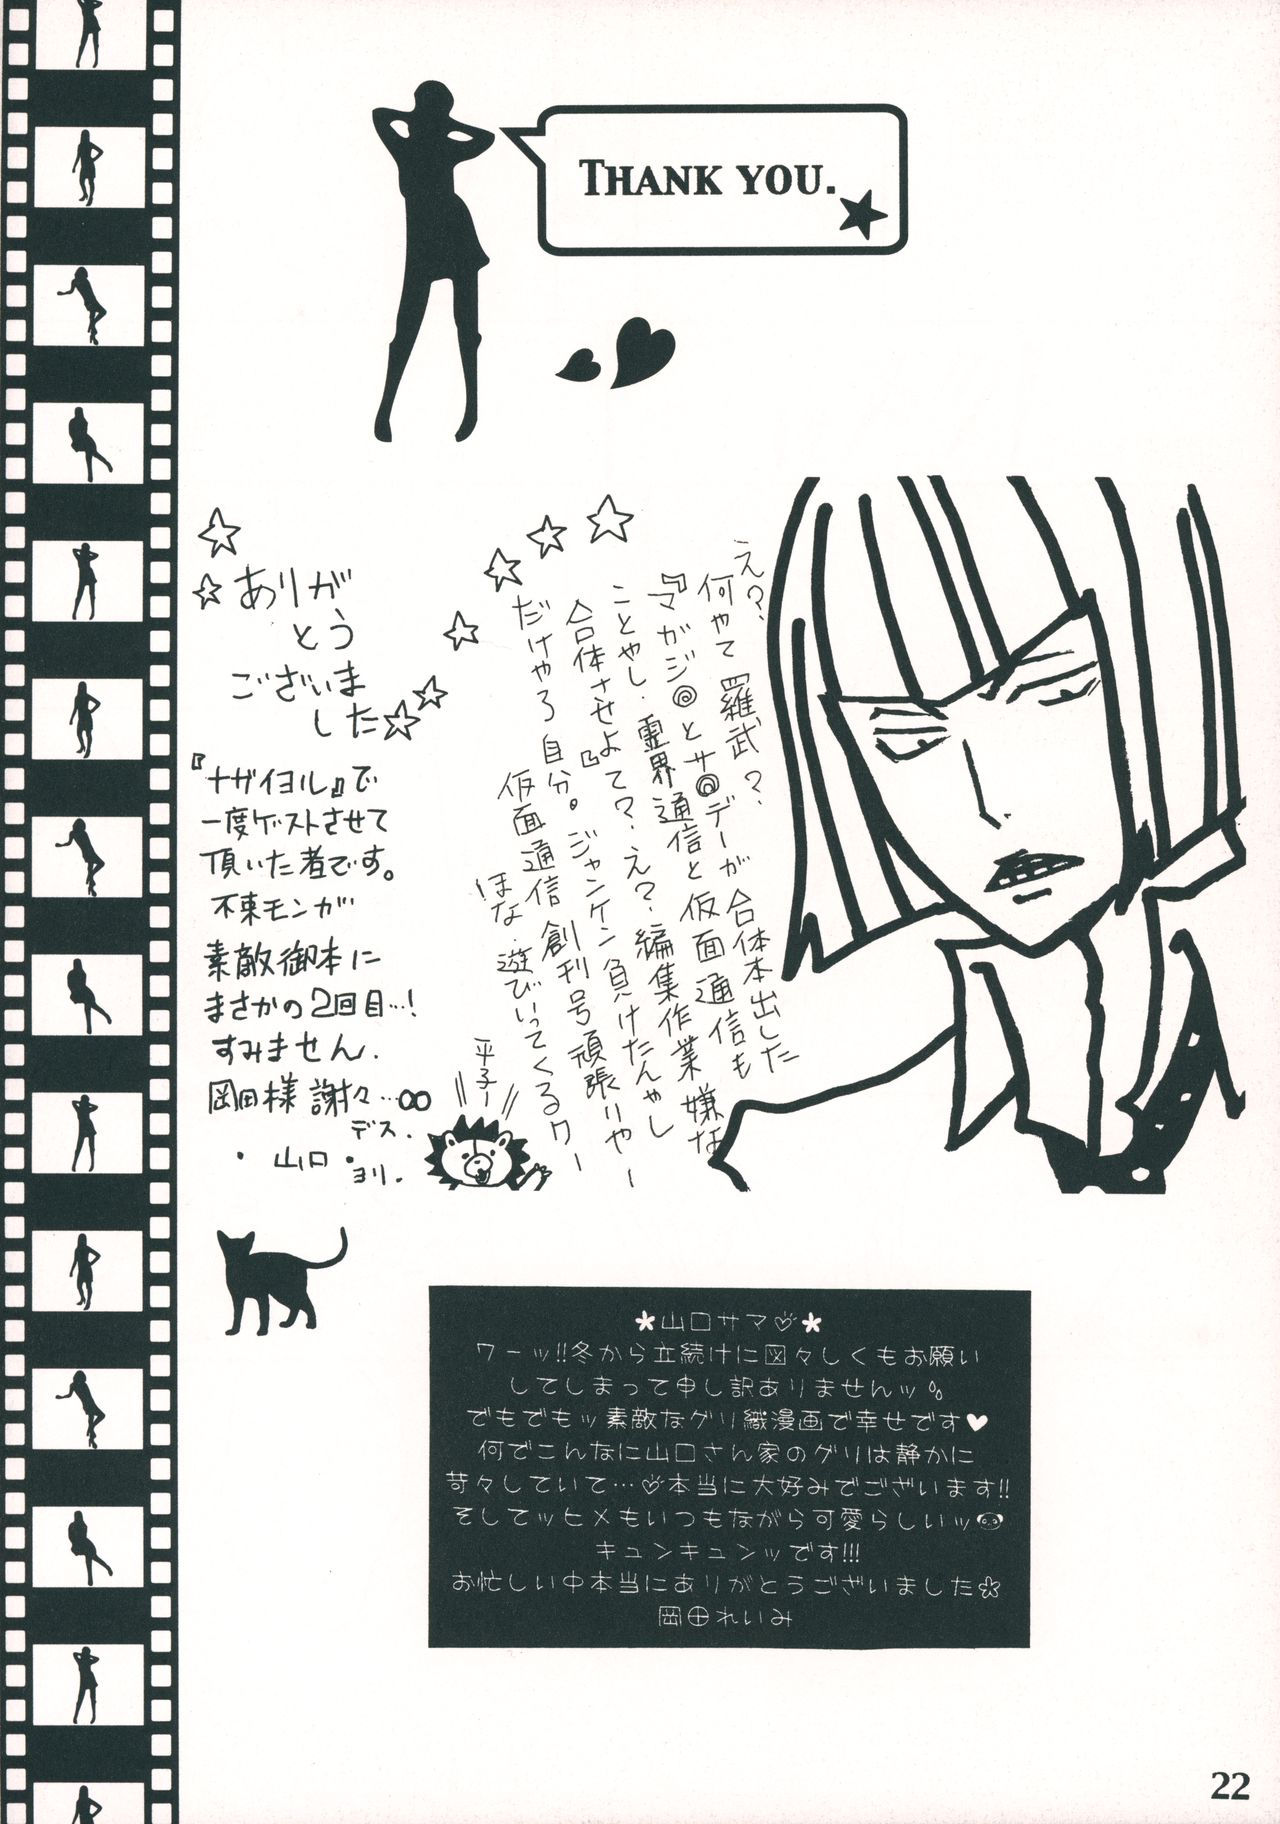 THANK YOU.
え?、
何やて羅武?、
『マガジ◎とサ◎デーが合体本出した
ことやし、霊界通信と仮面通信も
合体させよて?、え?、編集作業嫌な
だけやろ自分。ジャンケン負けたんやし
仮面通信創刊号頑張りやー
ほな、遊びいってくるワー
平子ー
ありが
とう
ございま
した
『ナガイヨル』で
一度ゲストさせて
頂いた者です。
不束モンが
素敵御本に
まさかの2回目…!
すみません、
岡田様 謝々…∞
デス、
・山口・
ヨリ、
*山口サマ♡*
ワーッ!!冬から立続けに図々しくもお願い
してしまって申し訳ありませんッ
でもでもッ素敵なグリ織漫画で幸せです♥
何でこんなに山口さん家のグリは静かに
苛々していて…♡本当に大好みでございます!!
そしてッヒメもいつもながら可愛らしいッ
キュンキュンッです!!!
お忙しい中本当にありがとうございました
岡田れいみ
22